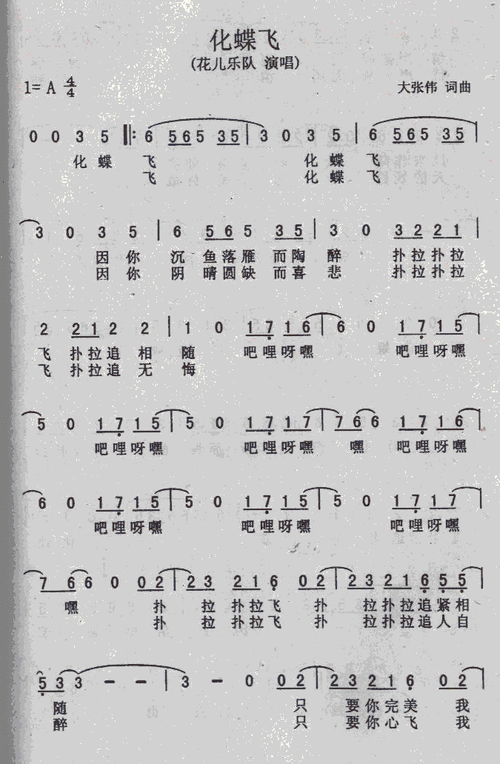 化蝶飞
(花儿乐队 演唱)
1= A 4/4
大张伟 词曲
0 0 3 5 ‖: 6 5 6 5 3 5 | 3 0 3 5 | 6 5 6 5 3 5 |
化 蝶 飞 化 蝶 飞
飞 化 蝶 飞
3 0 3 5 | 6 5 6 5 3 5 | 3 0 3 2 2 1 |
因 你 沉 鱼 落 雁 而 陶 醉 扑 拉 扑 拉
因 你 阴 晴 圆 缺 而 喜 悲 扑 拉 扑 拉
2 2 1 2 2 2 | 1 0 1 7 1 6 | 6 0 1 7 1 5 |
飞 扑 拉 追 相 随 吧 哩 呀 嘿 吧 哩 呀 嘿
飞 扑 拉 追 无 悔
5 0 1 7 1 5 | 5 0 1 7 1 6 | 7 6 6 0 1 7 1 6 |
吧 哩 呀 嘿 吧 哩 呀 嘿 嘿 吧 哩 呀 嘿
6 0 1 7 1 5 | 5 0 1 7 1 5 | 5 0 1 7 1 7 |
吧 哩 呀 嘿 吧 哩 呀 嘿 吧 哩 呀 嘿
7 6 6 0 0 0 2 | 2 3 2 1 6 0 2 | 2 3 2 1 6 5 5 |
嘿 扑 拉 扑 拉 飞 扑 拉 扑 拉 追 紧 相
扑 拉 扑 拉 飞 扑 拉 扑 拉 追 人 自
5 3 3 - - | 3 0 0 0 2 | 2 3 2 1 6 0 2 |
随 只 要 你 完 美 我
醉 只 要 你 心 飞 我